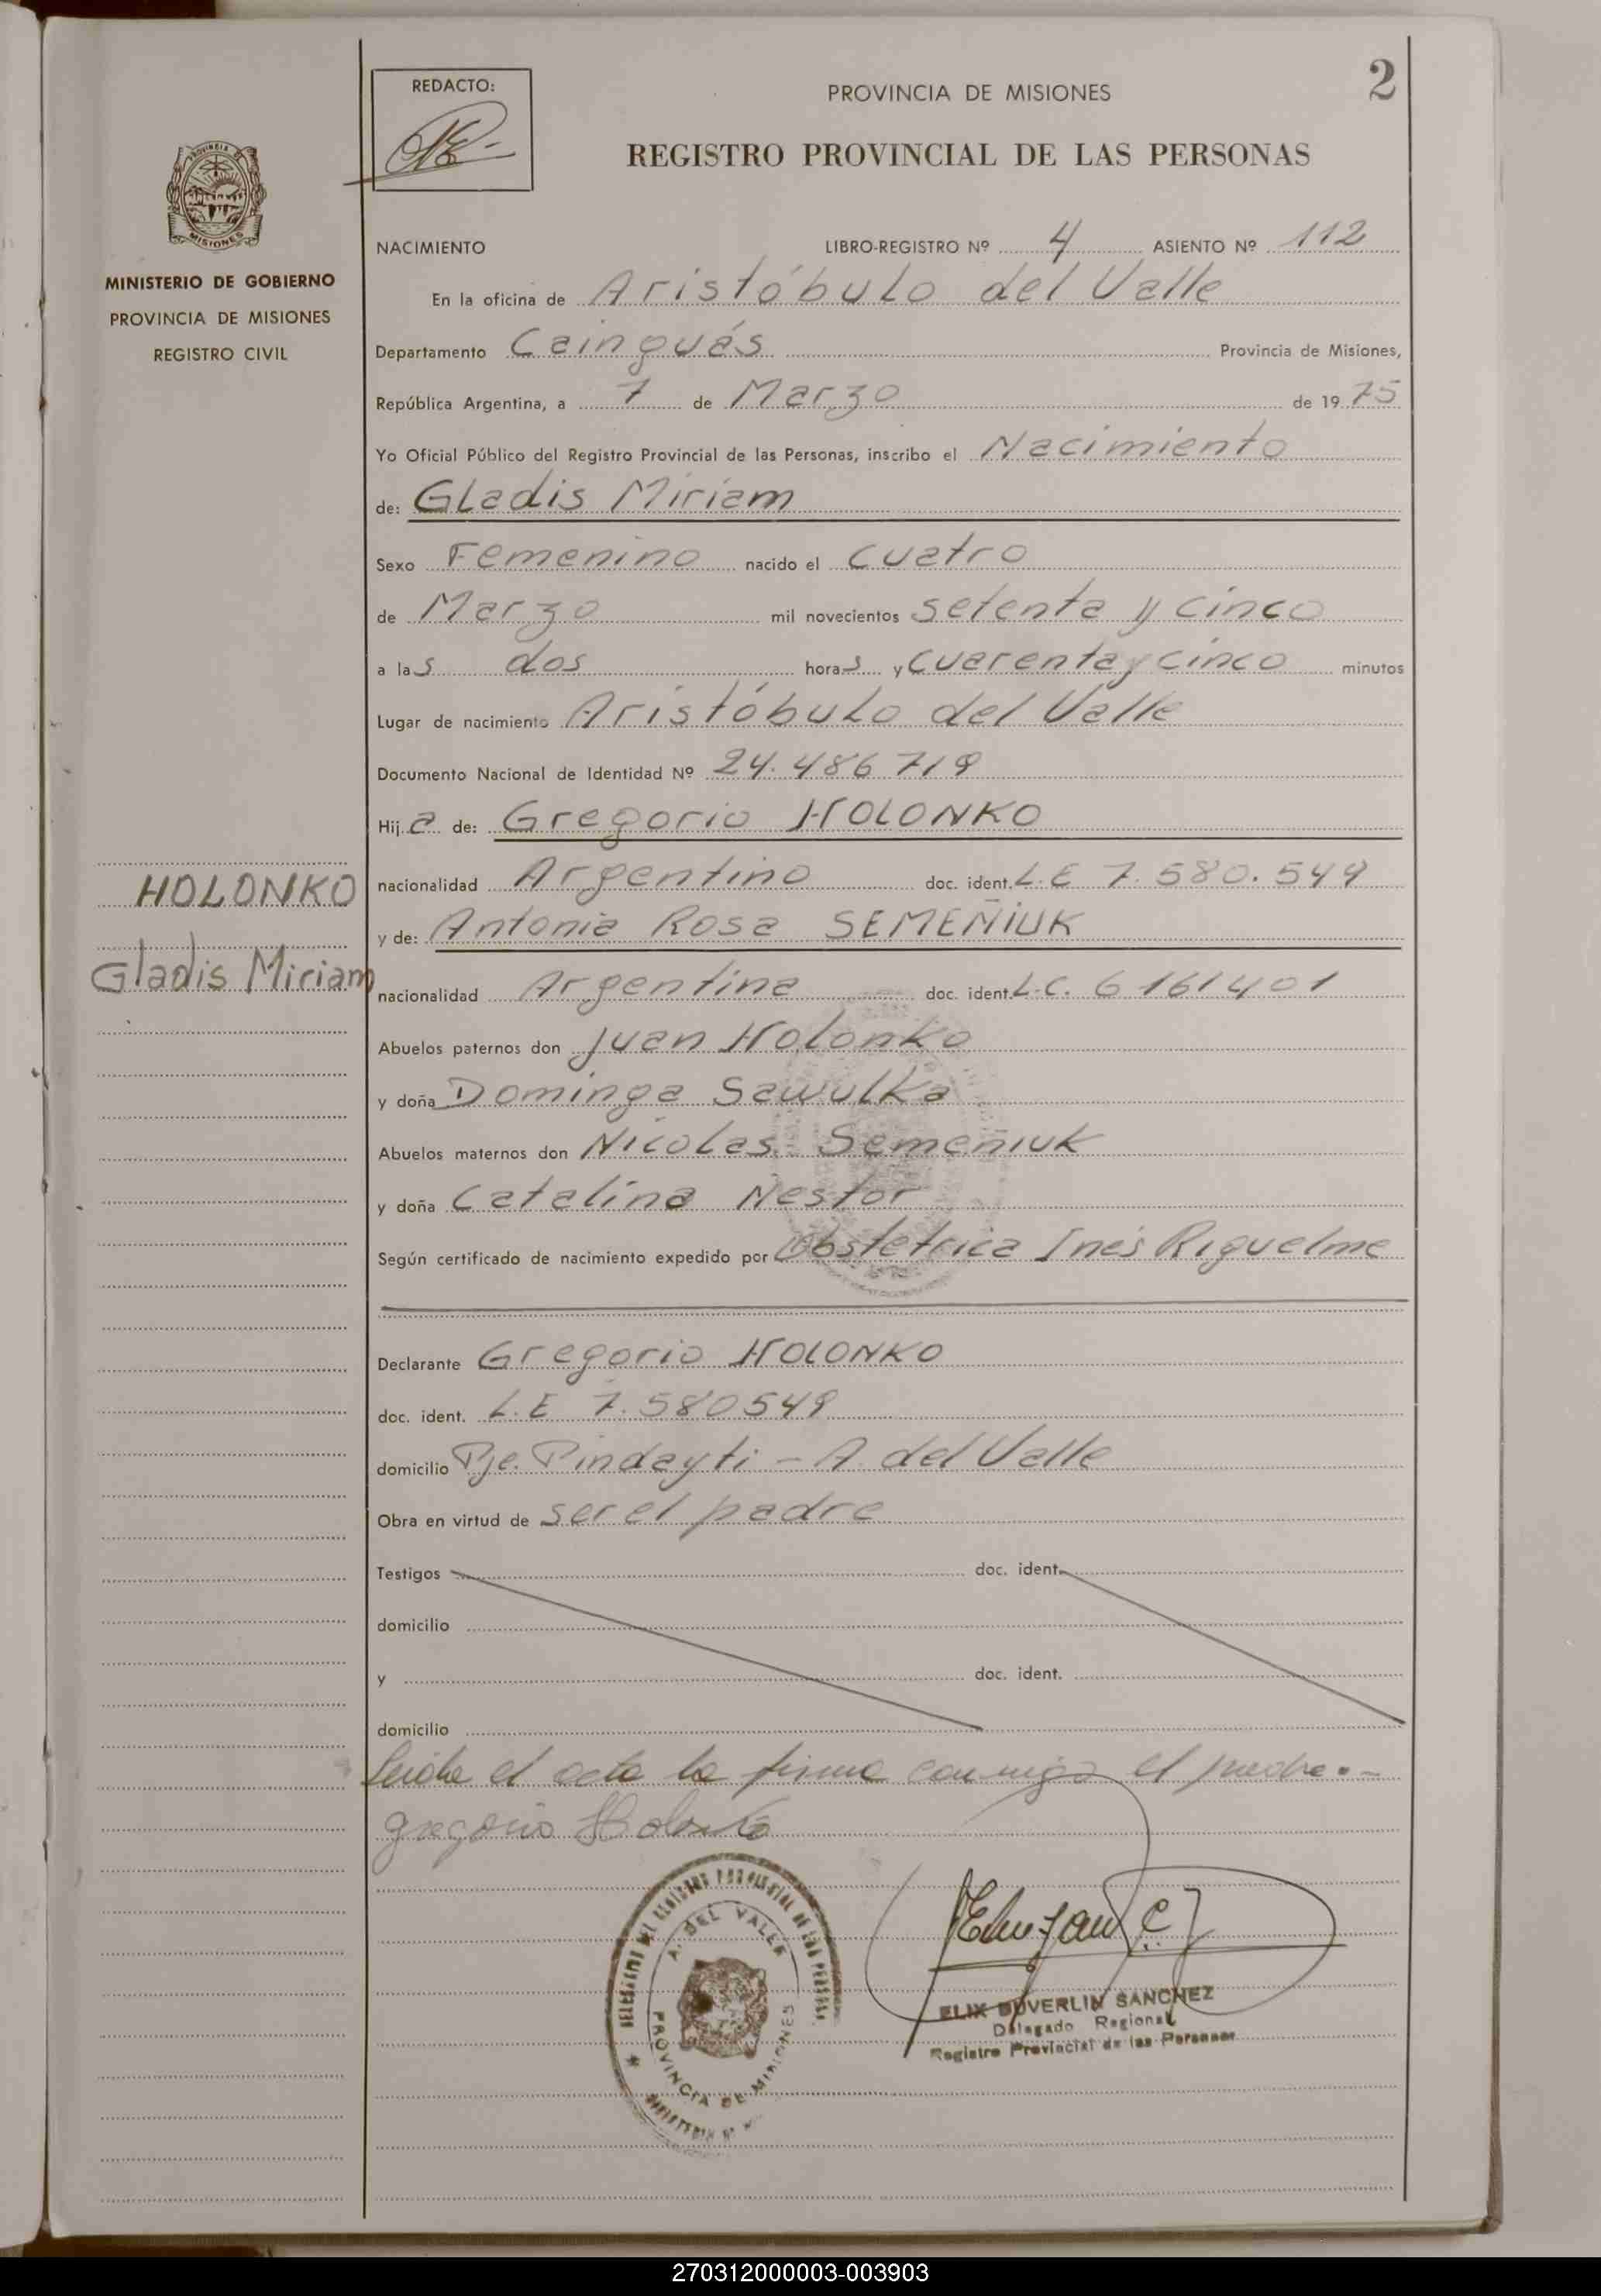 REDACTO:
PROVINCIA DE MISIONES
2
REGISTRO PROVINCIAL DE LAS PERSONAS
PROVINCIA DE
MISIONES
MINISTERIO DE GOBIERNO
PROVINCIA DE MISIONES
REGISTRO CIVIL
NACIMIENTO LIBRO-REGISTRO Nº 4 ASIENTO Nº 112
En la oficina de Aristóbulo del Valle
Departamento Cainguás Provincia de Misiones,
República Argentina, a 7 de Marzo de 1975
Yo Oficial Público del Registro Provincial de las Personas, inscribo el Nacimiento
de: Gladis Miriam
Sexo Femenino nacido el cuatro
de Marzo mil novecientos setenta y cinco
a las dos horas y cuarenta y cinco minutos
Lugar de nacimiento Aristóbulo del Valle
Documento Nacional de Identidad Nº 24.486.719
Hija de: Gregorio HOLONKO
HOLONKO
Gladis Miriam
nacionalidad Argentino doc. ident. L.E 7.580.549
y de: Antonia Rosa SEMEÑIUK
nacionalidad Argentina doc. ident. L.C. 6161401
Abuelos paternos don Juan Holonko
y doña Dominga Sawulka
Abuelos maternos don Nicolas Semeniuk
y doña Catalina Nestor
Según certificado de nacimiento expedido por Obstetrica Inés Riquelme
Declarante Gregorio HOLONKO
doc. ident. L.E 7.580549
domicilio Pje. Pindayti - A. del Valle
Obra en virtud de ser el padre
Testigos doc. ident.
domicilio
y doc. ident.
domicilio
Leida el acta la firma conmigo el padre.-
Gregorio Holonko
DELEGACION DEL REGISTRO PROVINCIAL DE LAS PERSONAS
A. DEL VALLE
PROVINCIA DE MISIONES
ELIX DUVERLIN SANCHEZ
Delegado Regional
Registro Provincial de las Personas
270312000003-003903